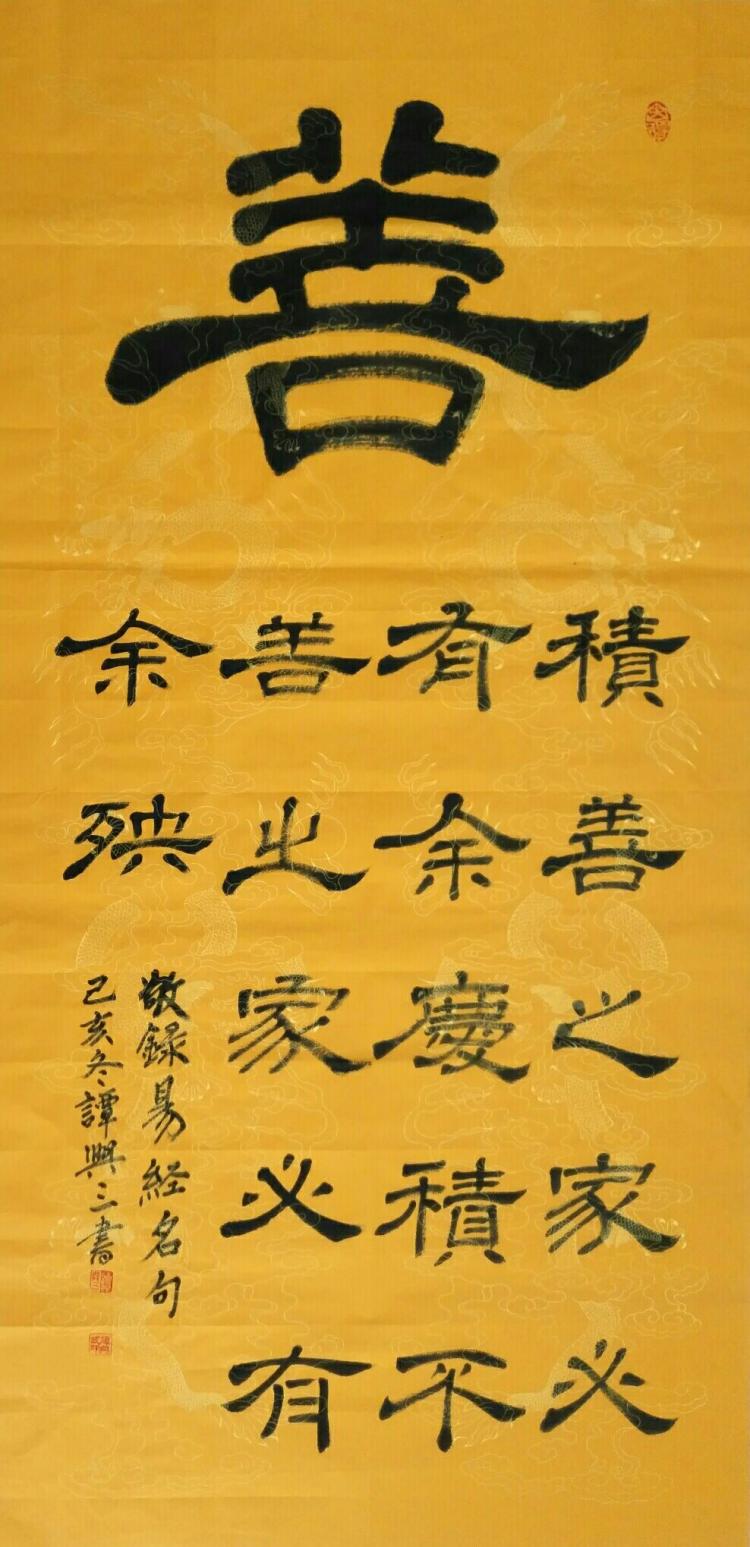 善
積善之家必
有余慶積不
善之家必有
余殃
敬録易経名句
己亥冬譚興三書